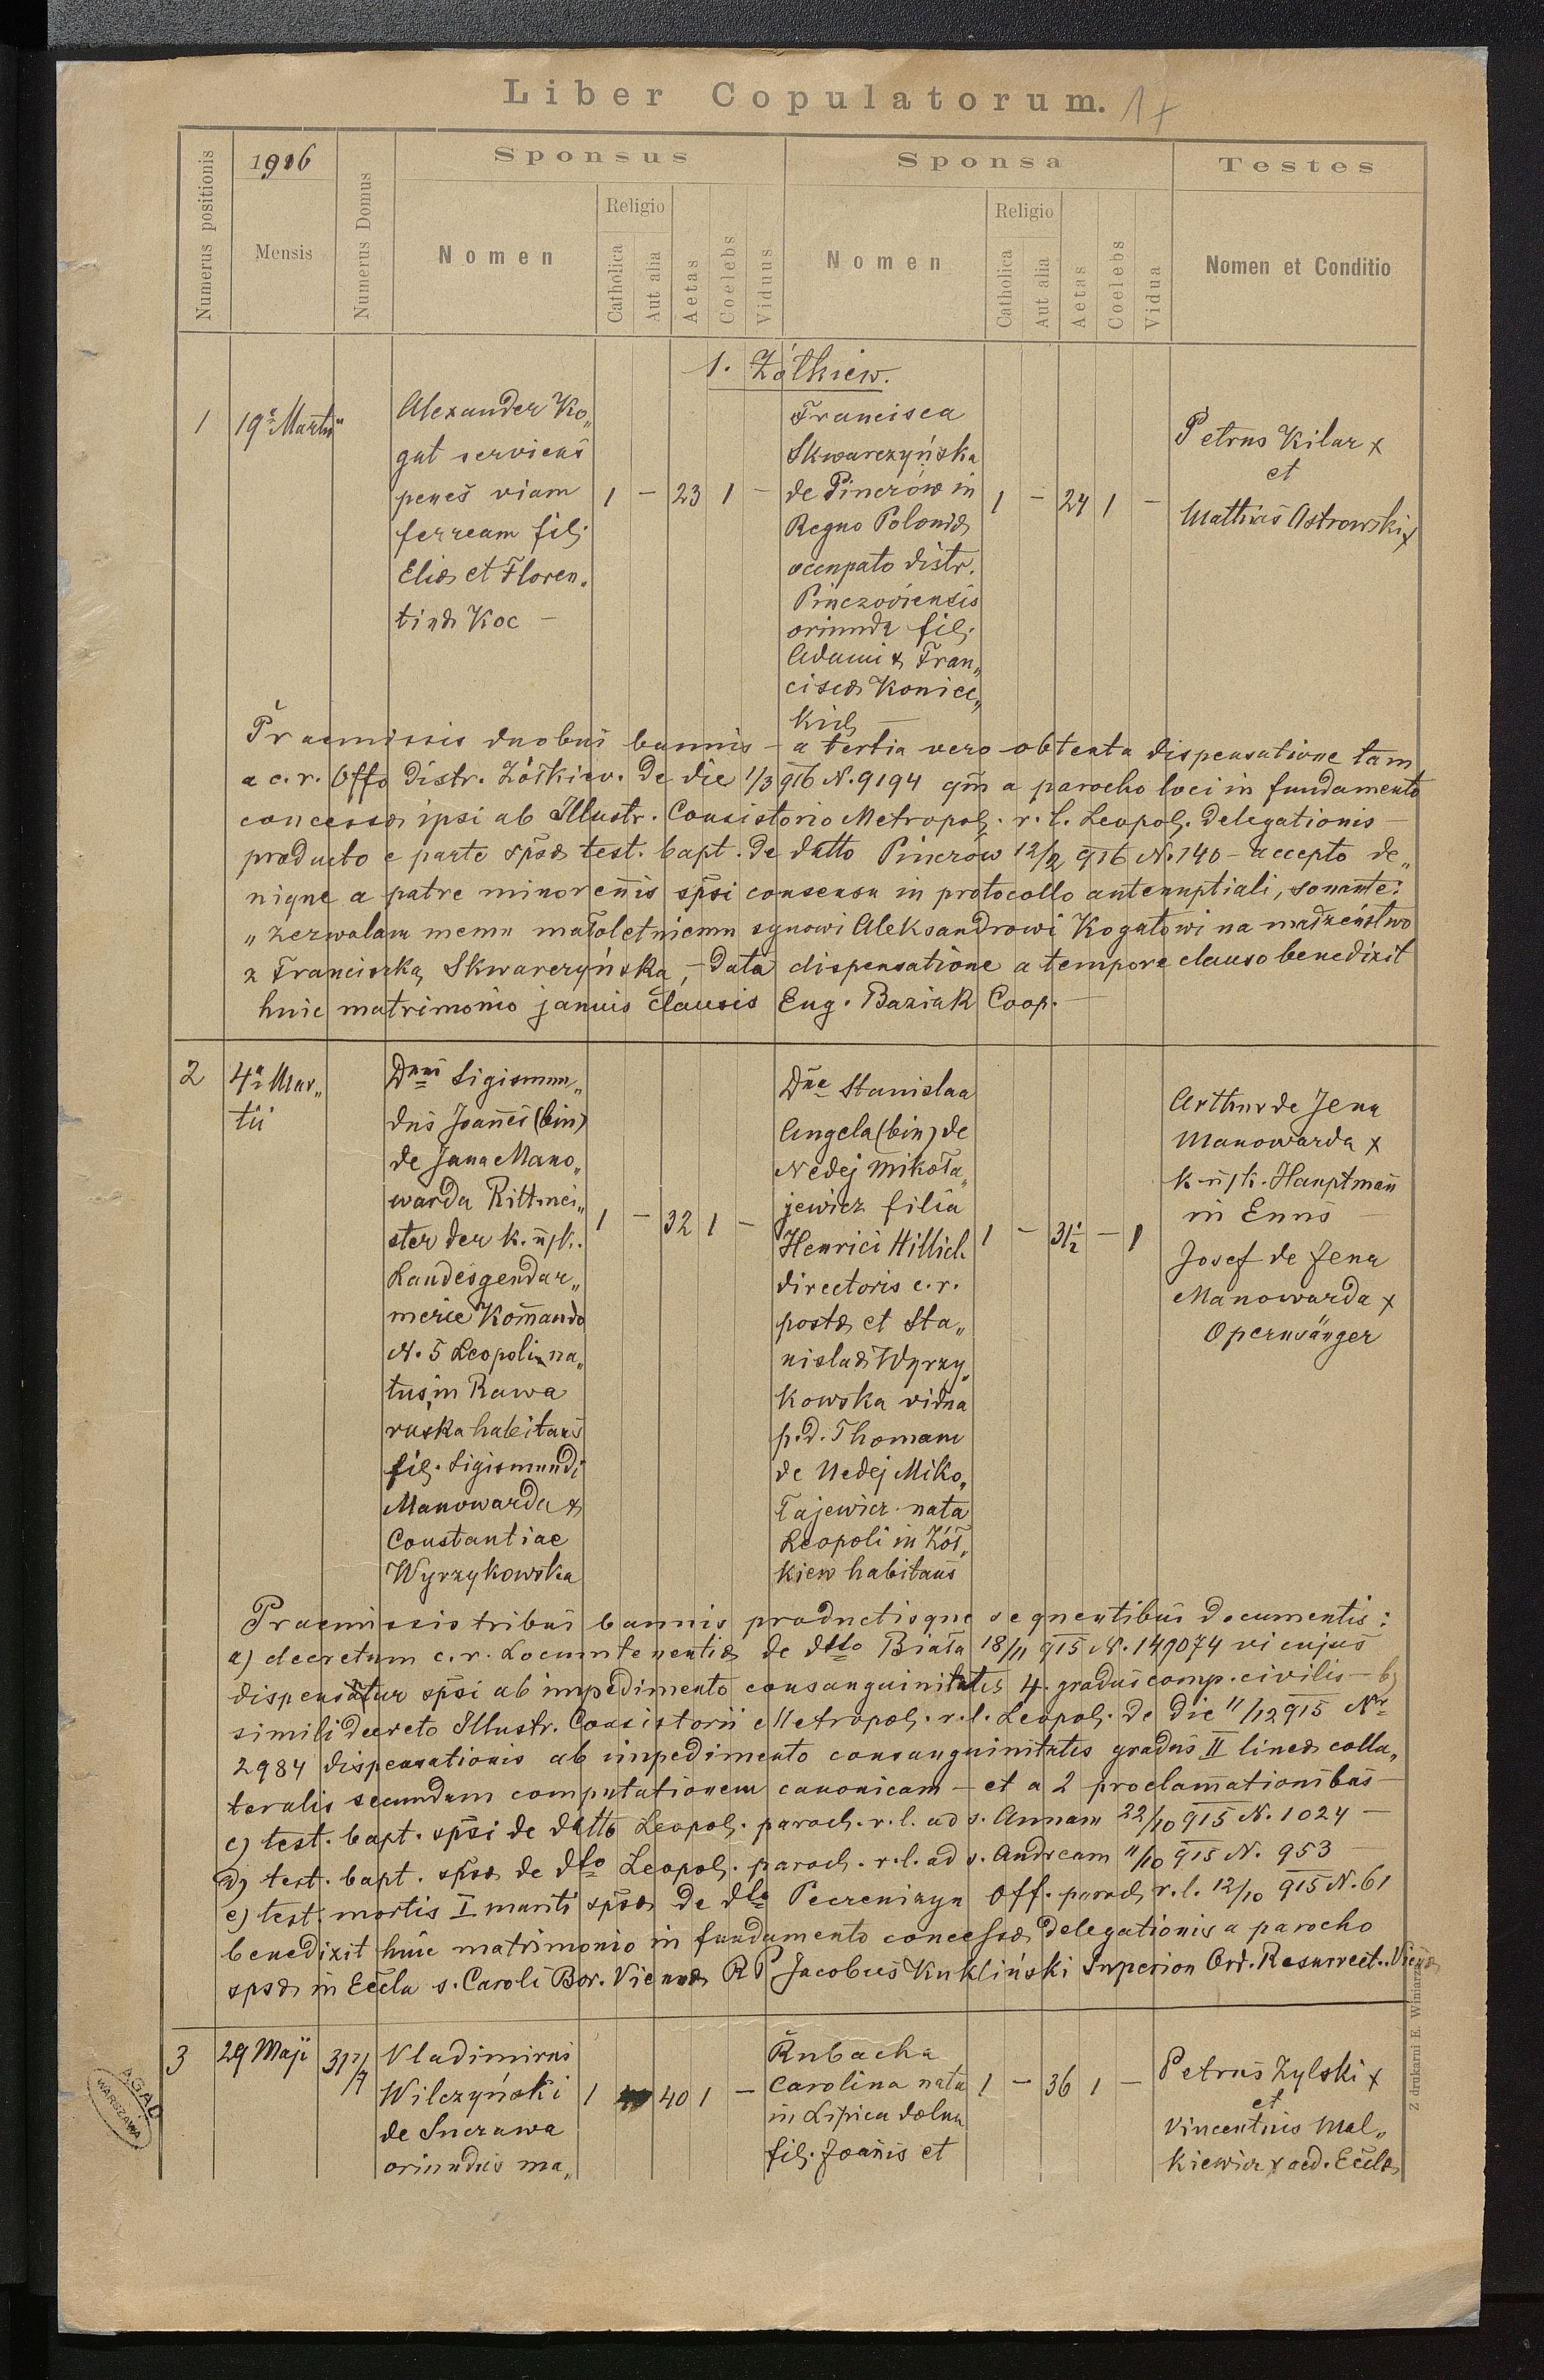 Liber Copulatorum. 17
Numerus positionis
1916
Mensis
Numerus Domus
Sponsus
Nomen
Religio
Catholica
Aut alia
Aetas
Coelebs
Viduus
Sponsa
Nomen
Religio
Catholica
Aut alia
Aetas
Coelebs
Vidua
Testes
Nomen et Conditio
1. Żółkiew.
1
19ª Martii
Alexander Ko„
gut serviens
penes viam
ferream fil.
Eliæ et Floren„
tinæ Koc –
1 – 23 1 –
Francisca
Skwarczyńska
de Pinczów in
Regno Poloniæ
occupato distr.
Pinczoviensis
oriunda fil.
Adami & Fran„
ciscæ Koniec„
kich –
1 – 24 1 –
Petrus Kilar x
et
Mathias Ostrowski x
Praemissis duobus bannis – a tertia vero obtenta dispensatione tam
a c. r. Offo distr. Żółkiew. de die 1/3 916 N. 9194 qm a parocho loci in fundamento
concessæ ipsi ab Illustr. Consistorio Metropol. r. l. Leopol. delegationis –
producto e parte spsæ test. bapt. de datto Pinczów 12/2 916 N. 140 – accepto de„
nique a patre minorenis spsi consensu in protocollo antenuptiali, sonante:
„zezwalam memu małoletniemu synowi Aleksandrowi Kogutowi na małżeństwo
z Franciszką Skwarczyńską, – data dispensatione a tempore clauso benedixit
huic matrimonio januis clausis Eug. Baziak Coop. –
2
4ª Mar„
tii
Dnus Sigismun„
dus Joañes (bin)
de Jena Mano„
warda Rittmei„
ster der k. u. k.
Landesgendar„
merie Komando
N. 5 Leopoli na„
tus, in Rawa
ruska habitans
fil. Sigismundi
Manowarda &
Constantiae
Wyrzykowska
1 – 32 1 –
Dna Stanislaa
Angela (bin) de
Nedej Mikoła„
jewicz filia
Henrici Hillich
directoris c. r.
postæ et Sta„
nislaæ Wyrzy„
kowska vidua
p. d. Thomam
de Nedej Miko„
łajewicz nata
Leopoli in Żół„
kiew habitans
1 – 31½ – 1
Arthur de Jena
Manowarda x
k. u. k. Hauptmañ
in Enns –
Josef de Jena
Manowarda x
Opernsänger
Praemissis tribus bannis productisque sequentibus documentis:
a) decretum c. r. Locumtenentiæ de dtto Biała 18/11 915 N. 149074 vi cujus
dispensatur spsi ab impedimento consanguinitatis 4. gradus comp. civilis – b)
simili decreto Illustr. Consistorii Metropol. r. l. Leopol. de die 11/12 915 Nr
2984 dispensationis ab impedimento consanguinitatis gradus II lineæ colla„
teralis secundum computationem canonicam – et a 2 proclamationibus –
c) test. bapt. spsi de datto Leopol. paroch. r. l. ad s. Annam 22/10 915 N. 1024 –
d) test. bapt. spsæ de dto Leopol. paroch. r. l. ad s. Andream 11/10 915 N. 953 –
e) test. mortis I mariti spsæ de dto Peczeniżyn Off. paroch. r. l. 12/10 915 N. 61
benedixit huic matrimonio in fundamento concessæ delegationis a parocho
spsæ in Eccla s. Caroli Bor. Viennæ RP Jacobus Kukliński Superior Ord. Resurrect. Vienæ
3
29 Maji
Vladimirus
Wilczyński
de Suczawa
oriundus ma„
1 40 1 –
Rubacha
Carolina nata
in Lipica dolna
fil. Joañis et
1 – 36 1 –
Petrus Zylski x
et
Vincentius Mal„
kiewicz x aed. Ecclæ
Z drukarni E. Winiarza
A.G.A.D.
WARSZAWA